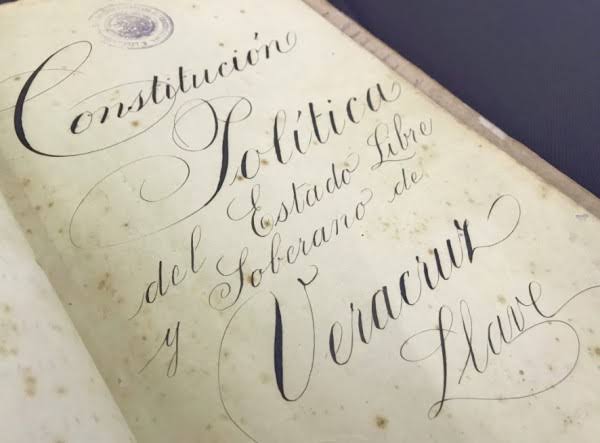 Constitución
Política
del Estado Libre
y Soberano de
Veracruz
Llave